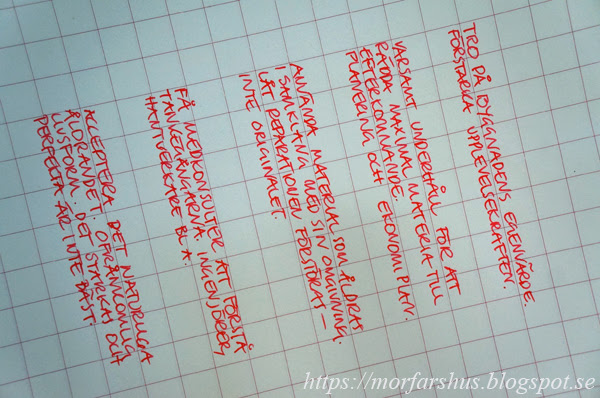 TRO PÅ BYGGNADENS EGENVÄRDE.
FÖRSTÄRKA UPPLEVELSEKRAFTEN.
VARSAMT UNDERHÅLL FÖR ATT
RÄDDA MAXIMAL MATERIA TILL
EFTERKOMMANDE.
PLANERING OCH EKONOMIPLAN.
ANVÄNDA MATERIAL SOM ÅLDRAS
I SAMKLANG MED SIN OMGIVNING.
LÅT REPARATIONEN FÖRSTÖRAS –
INTE ORIGINALET.
FÅ MEDKONSULTER ATT FÖRSTÅ
TANKEGÅNGARNA. INGENJÖRER,
HANTVERKARE BL A.
ACCEPTERA DET NATURLIGA
ÅLDRANDET I OFULLKOMLIG
LIVSFORM. DET STARKAS OCH
PERFEKTA ÄR INTE BÄST.
https://morfarshus.blogspot.se